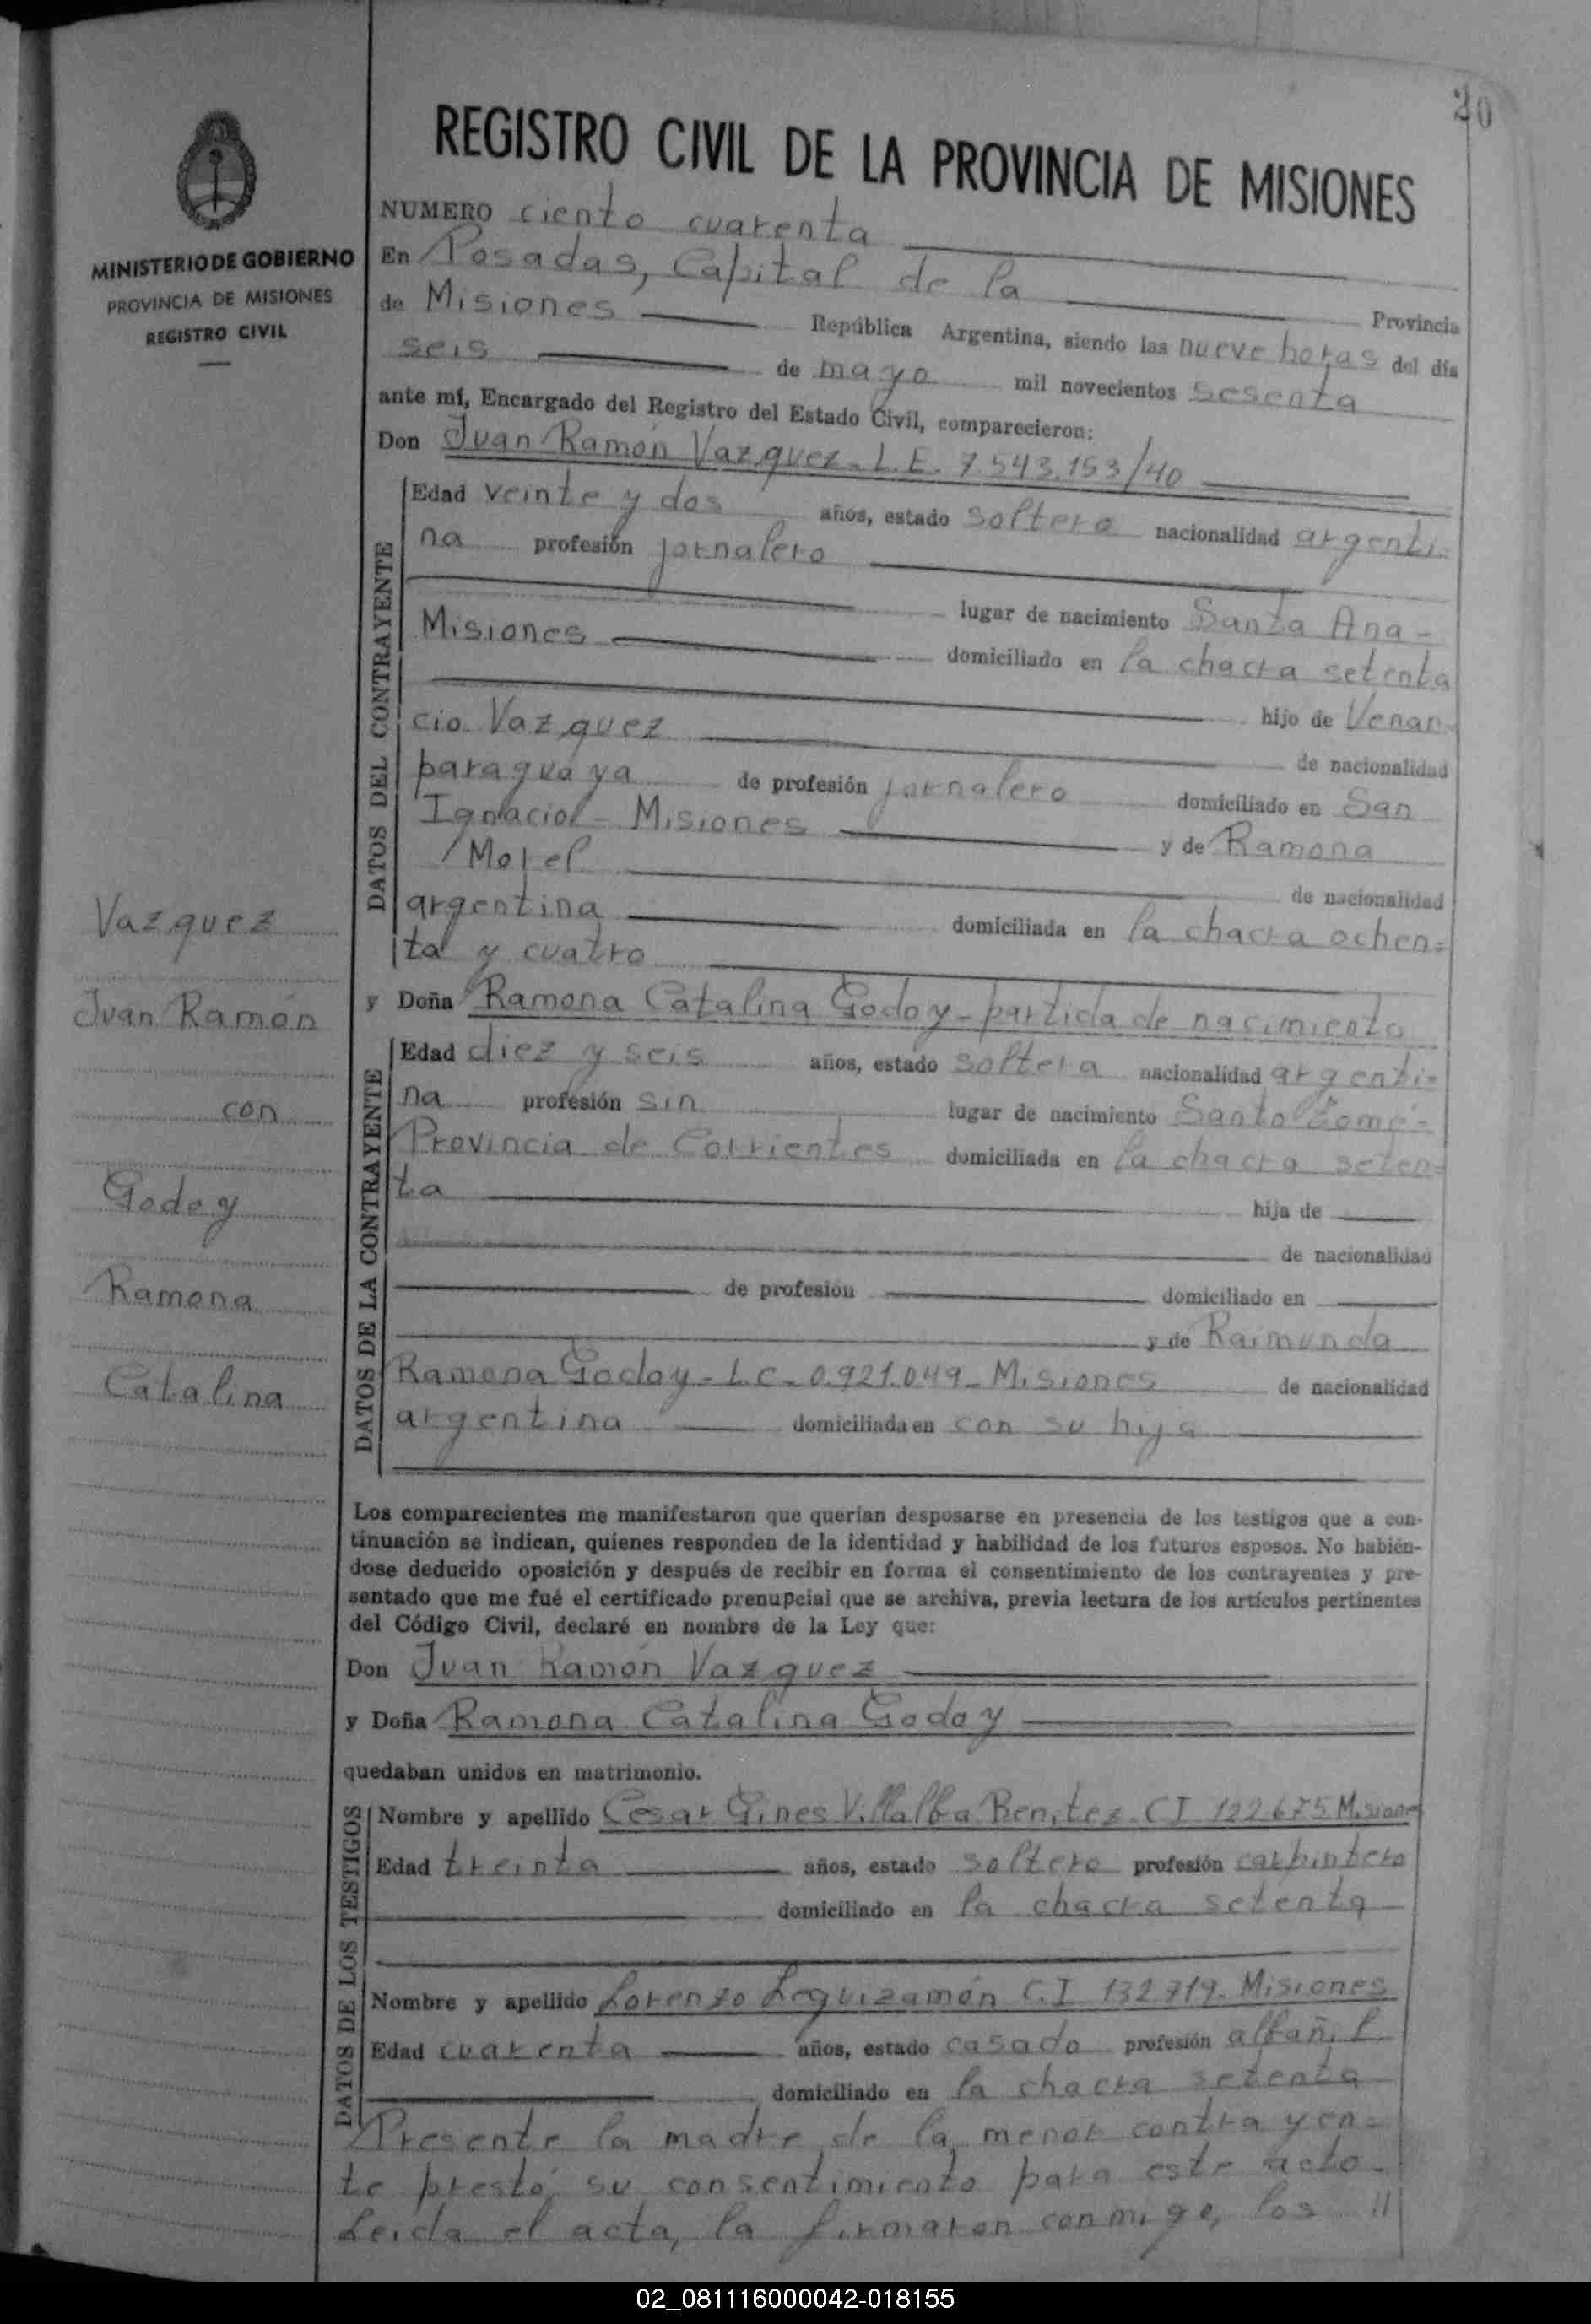 20
REGISTRO CIVIL DE LA PROVINCIA DE MISIONES
MINISTERIO DE GOBIERNO
PROVINCIA DE MISIONES
REGISTRO CIVIL
NUMERO ciento cuarenta
En Posadas, Capital de la Provincia
de Misiones República Argentina, siendo las nueve horas del día
seis de mayo mil novecientos sesenta
ante mí, Encargado del Registro del Estado Civil, comparecieron:
Don Juan Ramón Vazquez - L.E. 7.543.153/40
DATOS DEL CONTRAYENTE
Edad veinte y dos años, estado soltero nacionalidad argenti-
na profesión jornalero
lugar de nacimiento Santa Ana -
Misiones domiciliado en la chacra setenta
hijo de Venan-
cio Vazquez de nacionalidad
paraguaya de profesión jornalero domiciliado en San
Ignacio - Misiones y de Ramona
/Morel de nacionalidad
argentina domiciliada en la chacra ochen=
ta y cuatro
y Doña Ramona Catalina Godoy - partida de nacimiento
DATOS DE LA CONTRAYENTE
Edad diez y seis años, estado soltera nacionalidad argenti=
na profesión sin lugar de nacimiento Santo Tomé -
Provincia de Corrientes domiciliada en la chacra seten=
ta hija de
de nacionalidad
de profesión domiciliado en
y de Raimunda
Ramona Godoy - L.C. 0.921.049 - Misiones de nacionalidad
argentina domiciliada en con su hija
Vazquez
Juan Ramón
con
Godoy
Ramona
Catalina
Los comparecientes me manifestaron que querían desposarse en presencia de los testigos que a con-
tinuación se indican, quienes responden de la identidad y habilidad de los futuros esposos. No habién-
dose deducido oposición y después de recibir en forma el consentimiento de los contrayentes y pre-
sentado que me fué el certificado prenupcial que se archiva, previa lectura de los artículos pertinentes
del Código Civil, declaré en nombre de la Ley que:
Don Juan Ramón Vazquez
y Doña Ramona Catalina Godoy
quedaban unidos en matrimonio.
DATOS DE LOS TESTIGOS
Nombre y apellido Cesar Gines Villalba Benitez - C I 122.675 Misiones
Edad treinta años, estado soltero profesión carpintero
domiciliado en la chacra setenta
Nombre y apellido Lorenzo Leguizamón C.I 132.719 - Misiones
Edad cuarenta años, estado casado profesión albañil
domiciliado en la chacra setenta
Presente la madre de la menor contrayen=
te prestó su consentimiento para este acto.
Leida el acta, la firmaron conmigo, los //
02_081116000042-018155